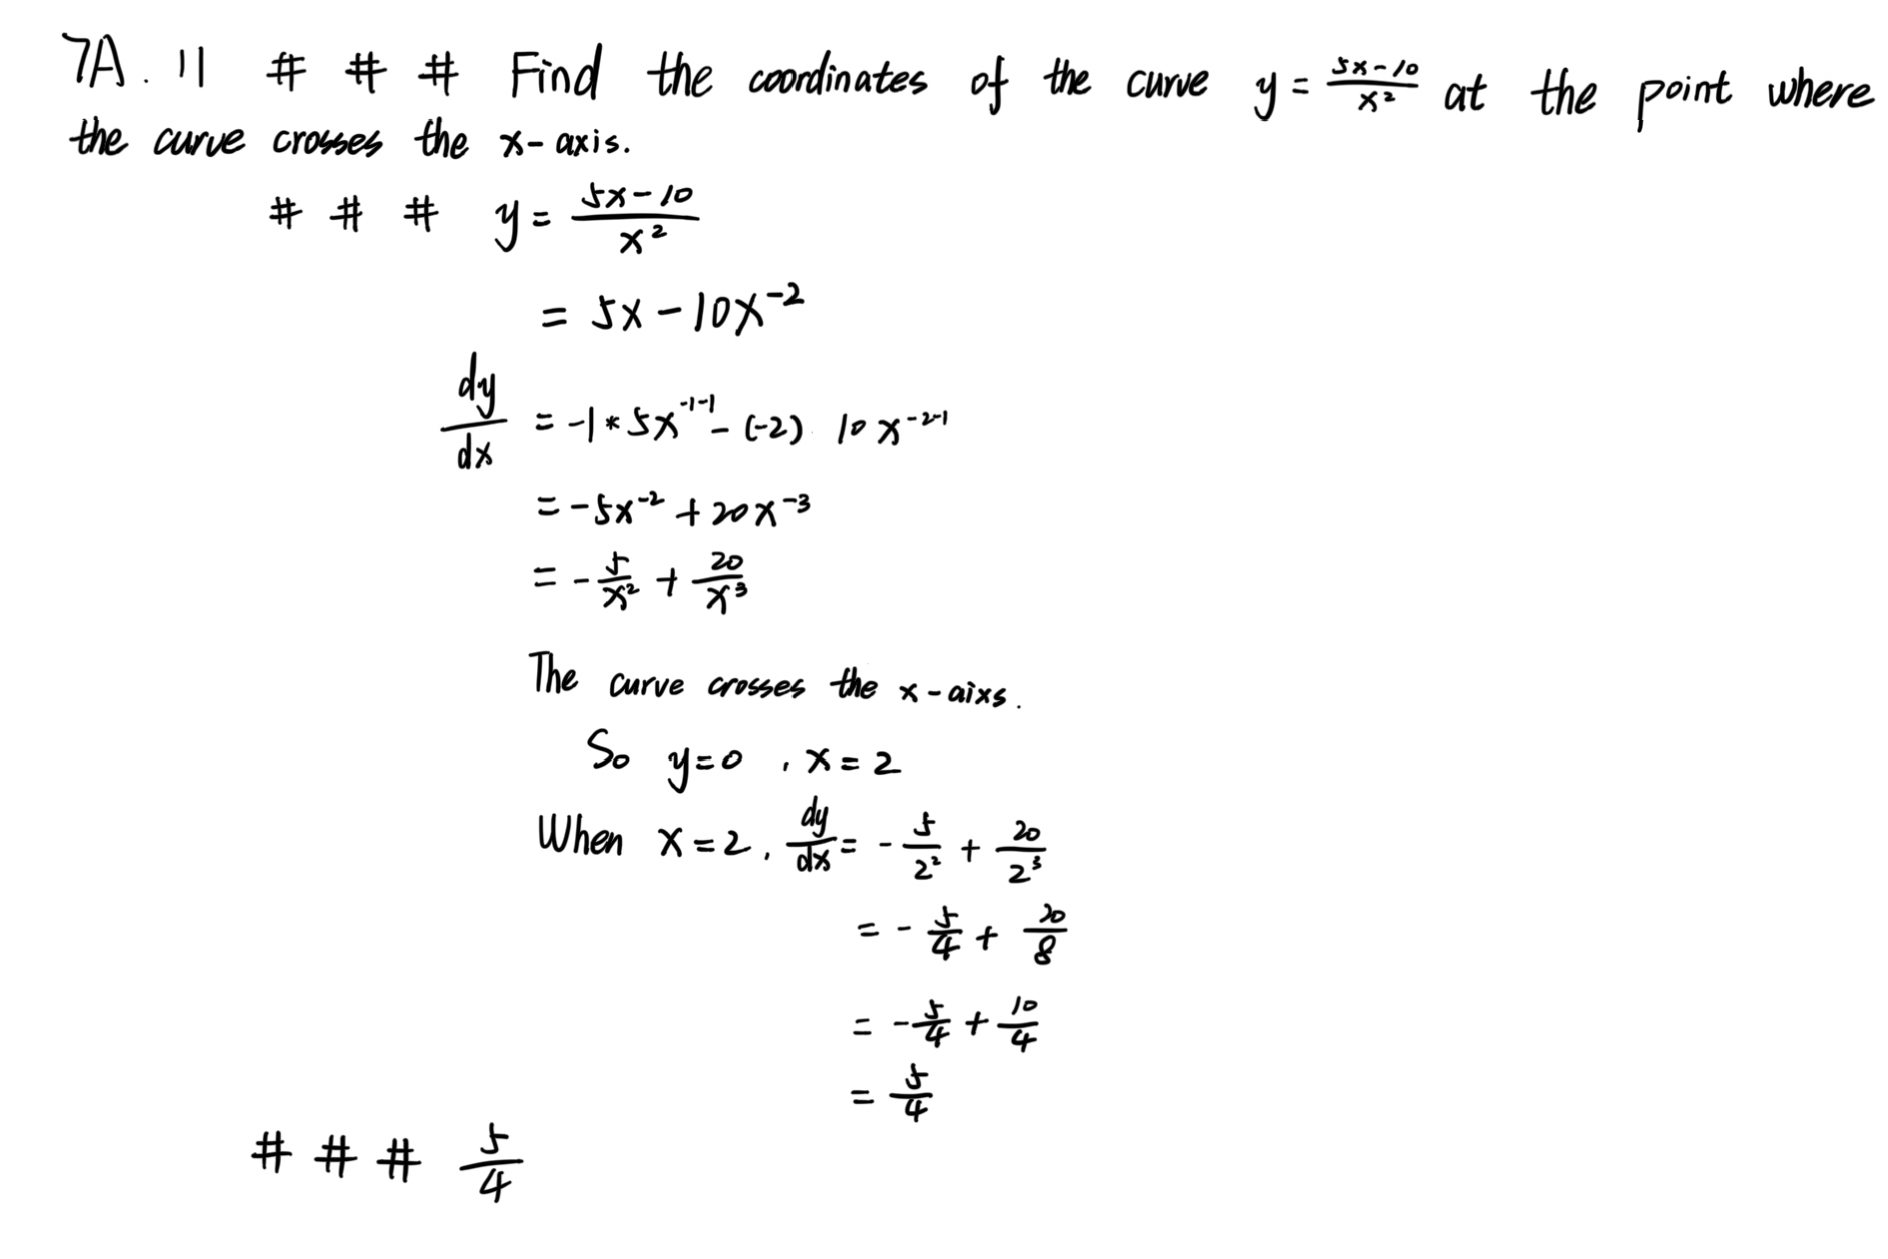 7A. 11 # # # Find the coordinates of the curve y = \frac{5x-10}{x^2} at the point where
the curve crosses the x-axis.
# # # y = \frac{5x-10}{x^2}
= 5x - 10x^{-2}
\frac{dy}{dx} = -1 * 5x^{-1-1} - (-2) 10x^{-2-1}
= -5x^{-2} + 20x^{-3}
= -\frac{5}{x^2} + \frac{20}{x^3}
The curve crosses the x-aixs.
So y=0 , x=2
When x=2, \frac{dy}{dx} = -\frac{5}{2^2} + \frac{20}{2^3}
= -\frac{5}{4} + \frac{20}{8}
= -\frac{5}{4} + \frac{10}{4}
= \frac{5}{4}
# # # \frac{5}{4}